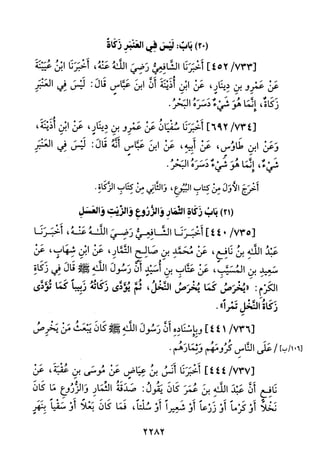 (٢٠) بَابُ: لَيْسَ فِي العَنْبَرِ زَكَاةٌ
[٤٥٢/٧٣٣] أَخْبَرَنَا الشَّافِعِيُّ رَضِيَ اللَّهُ عَنْهُ، أَخْبَرَنَا ابْنُ عُيَيْنَةَ
عَنْ عَمْرِو بنِ دِينَارٍ، عَنْ ابْنِ أُذَيْنَةَ أَنَّ ابنَ عَبَّاسٍ قَالَ: لَيْسَ فِي العَنْبَرِ
زَكَاةٌ، إِنَّمَا هُوَ شَيْءٌ دَسَرَهُ البَحْرُ.
[٦٩٢/٧٣٤] أَخْبَرَنَا سُفْيَانُ عَنْ عَمْرِو بنِ دِينَارٍ، عَنْ ابْنِ أُذَيْنَةَ،
وَعَنْ ابنِ طَاوُسٍ، عَنْ أَبِيهِ، عَنْ ابنِ عَبَّاسٍ أَنَّهُ قَالَ: لَيْسَ فِي العَنْبَرِ
شَيْءٌ، إِنَّمَا هُوَ شَيْءٌ دَسَرَهُ البَحْرُ.
أَخْرَجَ الأَوَّلَ مِنْ كِتَابِ البُيُوعِ، وَالثَّانِي مِنْ كِتَابِ الزَّكَاةِ.
(٢١) بَابُ زَكَاةِ الثِّمَارِ وَالزُّرُوعِ وَالزَّيْتِ وَالعَسَلِ
[٤٤٠/٧٣٥] أَخْبَرَنَا الشَّافِعِيُّ رَضِيَ اللَّهُ عَنْهُ، أَخْبَرَنَا
عَبْدُ اللَّهِ بنُ نَافِعٍ، عَنْ مُحَمَّدِ بنِ صَالِحٍ التَّمَّارِ، عَنْ ابْنِ شِهَابٍ، عَنْ
سَعِيدِ بنِ المُسَيَّبِ، عَنْ عَتَّابِ بنِ أُسَيْدٍ أَنَّ رَسُولَ اللَّهِ ﷺ قَالَ فِي زَكَاةِ
الكَرْمِ: «يُخْرَصُ كَمَا يُخْرَصُ النَّخْلُ، ثُمَّ يُؤَدَّى زَكَاتُهُ زَبِيباً كَمَا تُؤَدَّى
زَكَاةُ النَّخْلِ تَمْراً».
[٤٤١/٧٣٦] وَبِإِسْنَادِهِ أَنَّ رَسُولَ اللَّهِ ﷺ كَانَ يَبْعَثُ مَنْ يَخْرِصُ
[١٠٦/ب]/ عَلَى النَّاسِ كُرُومَهُم وَثِمَارَهُم.
[٤٤٤/٧٣٧] أَخْبَرَنَا أَنَسُ بنُ عِيَاضٍ عَنْ مُوسَى بنِ عُقْبَةَ، عَنْ
نَافِعٍ أَنَّ عَبْدَ اللَّهِ بنَ عُمَرَ كَانَ يَقُولُ: صَدَقَةُ الثِّمَارِ وَالزُّرُوعِ مَا كَانَ
نَخْلاً أَوْ كَرْماً أَوْ زَرْعاً أَوْ شَعِيراً أَوْ سُلْتاً، فَمَا كَانَ بَعْلاً أَوْ سَقْياً بِنَهْرٍ
٢٢٨٢